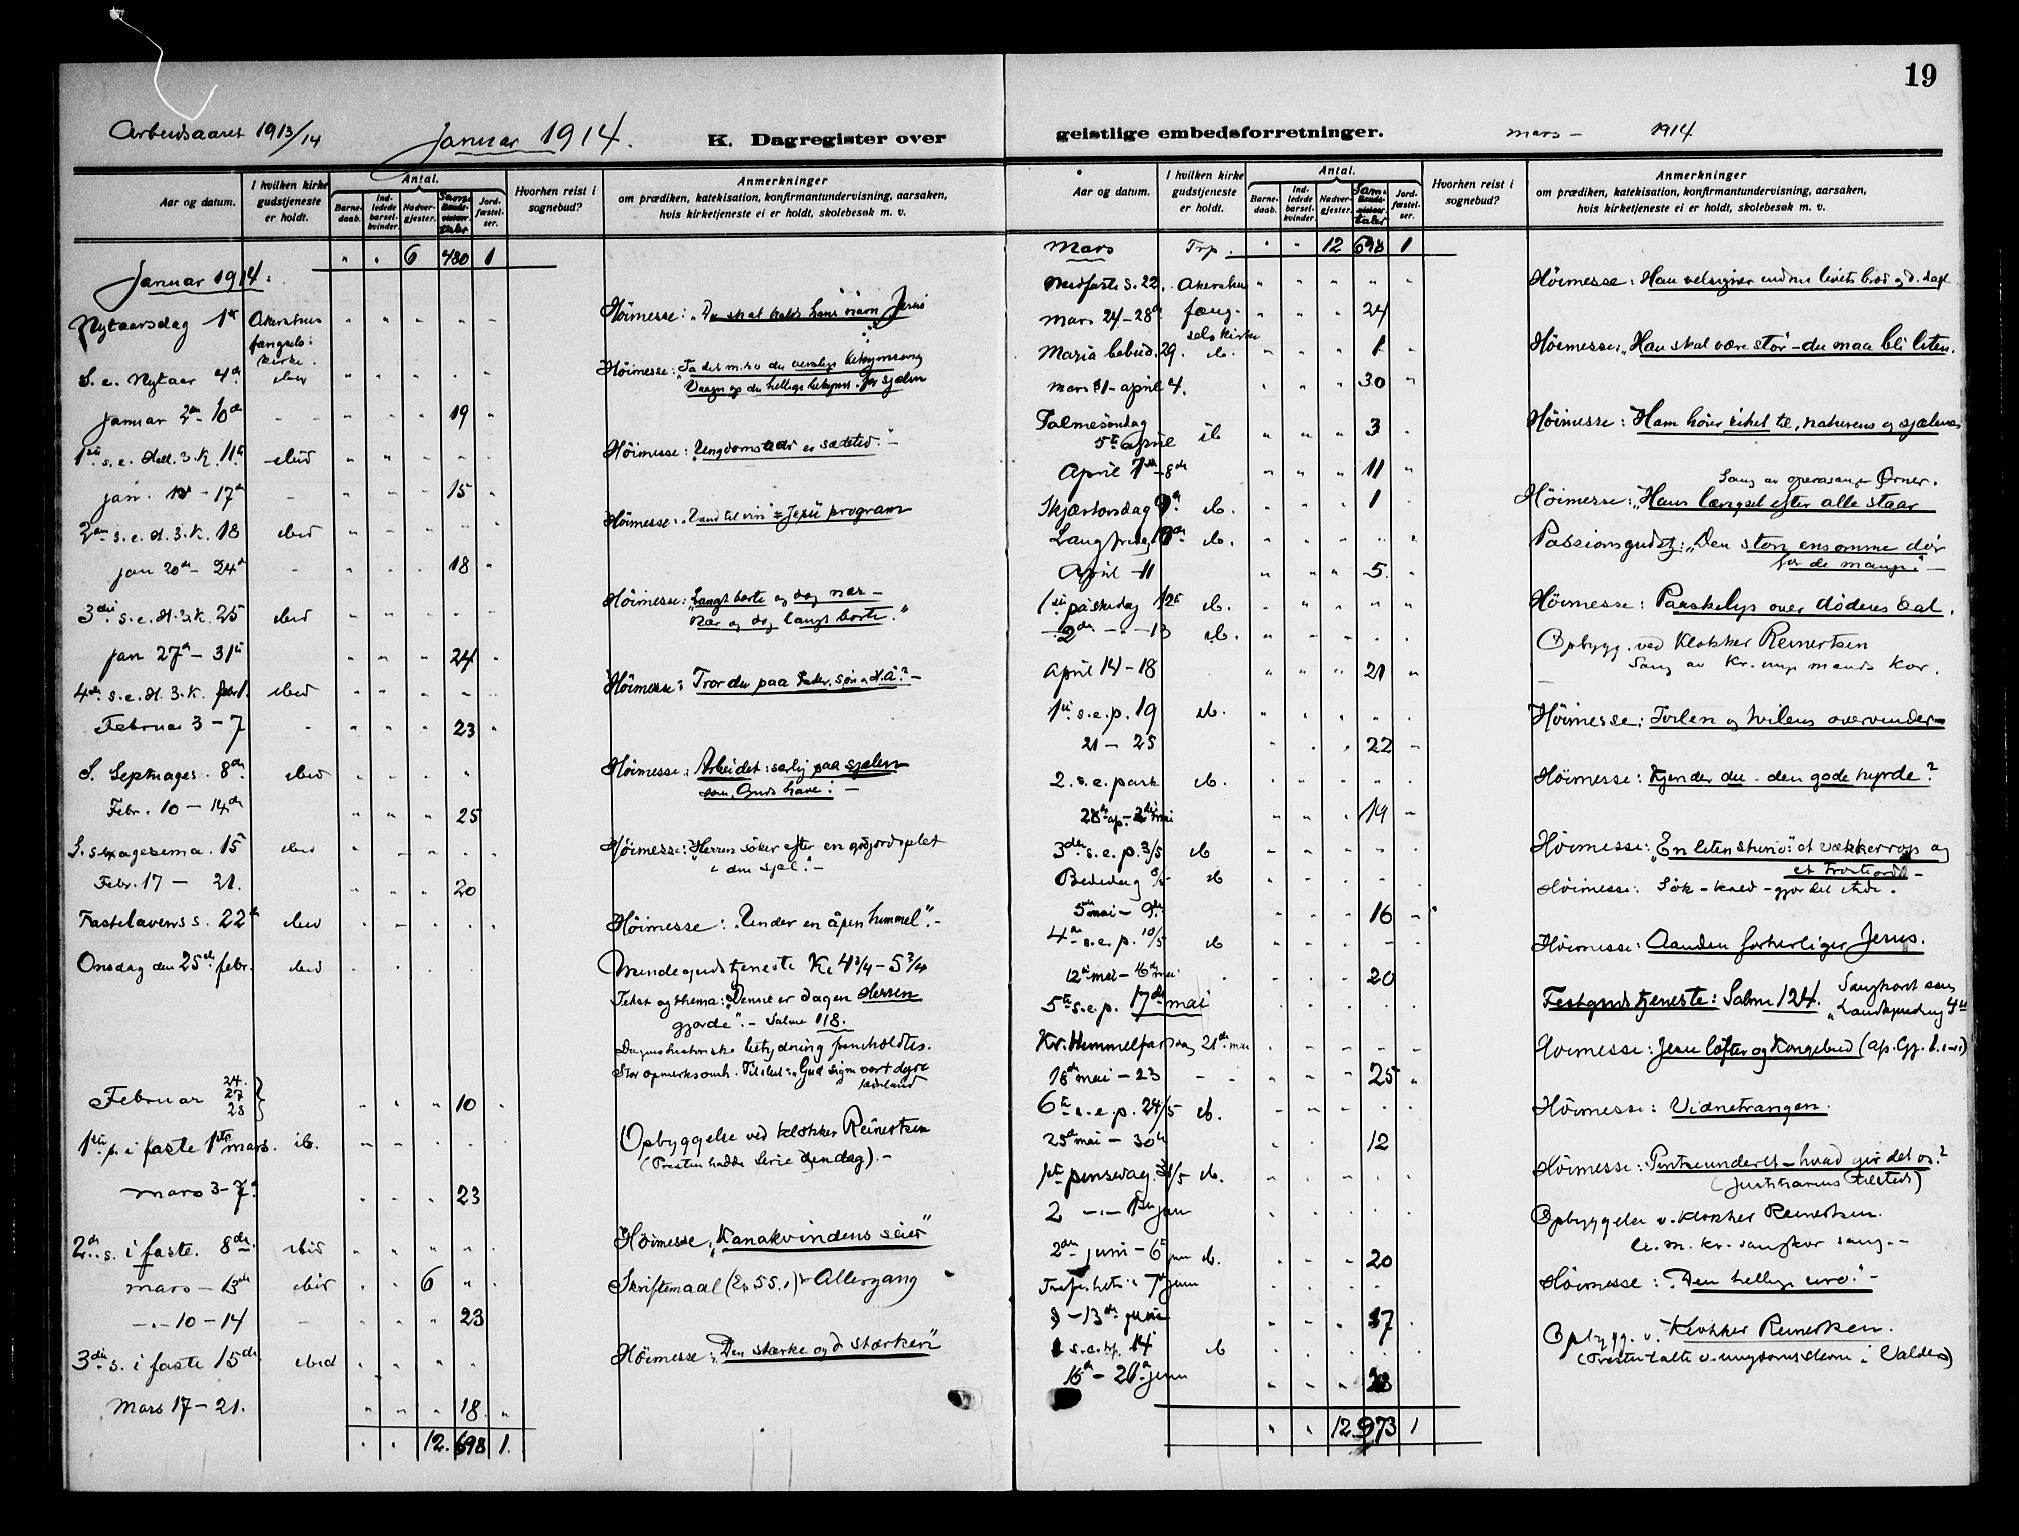 19
Arbeidsaaret 1913/14
Januar 1914.
K. Dagregister over
Aar og datum.
I hvilken kirke gudstjeneste er holdt.
Antal.
Barne-daab.
Ind-ledede barsel-kvinder.
Nadver-gjester.
Sam-taler
Jord-fæstel-ser.
Hvorhen reist i sognebud?
Anmerkninger
om prædiken, katekisation, konfirmantundervisning, aarsaken,
hvis kirketjeneste ei er holdt, skolebesøk m. v.
" " 6 480 1
Januar 1914:
Nytaarsdag 1ste Akershus Høimesse: "Du skal kalde hans navn Jesus
fængsels:
kirke.
S. e. Nytaar 4de ibid Høimesse:
Januar 2den - 10de - - " " " 19 "
1ste s. e. Hell. 3 K. 11te ibid Høimesse: "Ungdomstidi er sædetid." -
jan. 13 - 17de - " " " 15 "
2den s. e. H. 3. K. 18 ibid Høimesse: "Vand til vin" = Jesu program
jan 20de - 24de - " " " 18 "
3die s. e. H. 3. K. 25 ibid Høimesse: "Langt borte og dog nær -
Nær og dog langt borte."
jan 27de - 31te " " " 24 "
4de s. e. H. 3. K. febr 1. ibid Høimesse: Tror du paa Fader, søn H. Å? -
Februar 3 - 7 " " " 23 "
S. Septuages. 8de ibid Høimesse: Arbeidet: særlig paa sjælen
som Guds have: -
Febr. 10 - 14de " " " 25
S. sexagesima. 15 ibid Høimesse: "Herren søker efter en plet
i din sjæl." -
Febr. 17 - 21. " " " 20
Fastelavens s. 22de ibid Høimesse: "Under en åpen himmel". -
Onsdag den 25de febr. ibid Mindegudstjeneste Kl 4 3/4 - 5 3/4
Tekst og thema: "Denne er dagen Herren
gjorde". - Salme 118.
Dagens historiske betydning fremholdtes.
Stor opmerksomh. Tilslut: "Gud sign vort dyre
fædreland
Februar 24. 27 28 } " " " 10 "
1ste s. i faste 1ste mars. ib. Opbyggelse ved klokker Reinertsen
(Presten hadde ferie denne dag). -
mars 3 - 7de " " " 23
2den s. i faste. 8de ibid Høimesse "Kanakvindens seier"
mars - 13de ibid " " 6 " Skriftemaal (Es 55.1) + Altergang
-"- 10 - 14 - " " " 23
3die s. i faste 15de ibid Høimesse: "Den stærke og d stærkere"
Mars 17 - 21. " " " 18 "
" " 12. 698 1.
geistlige embedsforretninger.
mars - 1914
Aar og datum.
I hvilken kirke gudstjeneste er holdt.
Antal.
Barne-daab.
Ind-ledede barsel-kvinder.
Nadver-gjester.
Sam-taler
Jord-fæstel-ser.
Hvorhen reist i sognebud?
Anmerkninger
om prædiken, katekisation, konfirmantundervisning, aarsaken,
hvis kirketjeneste ei er holdt, skolebesøk m. v.
Mars Trp. " " 12 698 1
Midfaste s. 22. Akershus Høimesse: Han velsigner endnu livets brød
Mars 24 - 28de fæng- " " " 24
sels kirke
Maria bebud. 29. ib. " " " 1 " Høimesse: "Han skal være stor" - du maa bli liten.
mars 31 - april 4. " " " 30 "
Palmesøndag
5te april ib " " " 3 " Høimesse: Ham hører riket til, naturens og sjælenes
April 7de - 8de " " " 11 "
Sang av operasanger Ørner.
Skjærtorsdag 9de ib. " " " 1 Høimesse: "Hans længsel efter alle staar
Langfredag 10de ib. Passionsgudstj: "Den store ensomme dør
for de mange." -
April - 11 " " " 5. "
1ste påskedag 12te ib. Høimesse: Paaskelys over dødens dal.
2den -"- 13 ib. Opbygg. ved Klokker Reinertsen
Sang av Kr. unge mænds kor.
April 14 - 18 " " " 21 "
1ste s. e. p. 19 ib. Høimesse: Tvilen og tvilens overvinder -
21 - 25 " " " 22 -
2. s. e. paask ib. Høimesse: Kjender du - den gode hyrde?
28de ap. - 2den mai " " " 19 -
3die s. e. p. 3/5 ib Høimesse: "En liten stund": et vækkerrop og
et trøsteord -
Bededag 8/5 ib Høimesse: Søk - kald - gjør det
5te mai - 9de " " " 16 "
4de s. e. p. 10/5 ib Høimesse: Aanden forherliger Jesus.
12te mai - 16de mai " " " 20
5te s. e. p. 17de mai Festgudstjeneste: Salme 124. Sangkoret sang
"Landkjending"
Kr. Himmelfartsdag 21de mai Høimesse: Jesu løfter og Kongebud (Ap. Gj. 1. 1-11)
18de mai - 23 - - " " 25 "
6te s. e. p. 24/5 ib. Høimesse: Vidnetrangen.
25de mai - 30te " " " 12
1ste pinsedag 31/5 ib. Høimesse: Pintseunderet - hvad gir det os?
(Justitiarius tilsted)
2 -"- 1ste juni Opbyggelse v. klokker Reinertsen.
U. m. kr. sangkor sang. -
2den juni - 6te juni ib. " " " 20
Trefoldighets s 7de juni Høimesse: "Den hellige uro". -
9 - 13de juni " " " 37
1 s. e. tref. 14 ib Opbygg. v. Klokker Reinertsen.
(Presten talte v. ungdomsstevne i Valdres)
16de - 20de juni
" " 12. 973 1